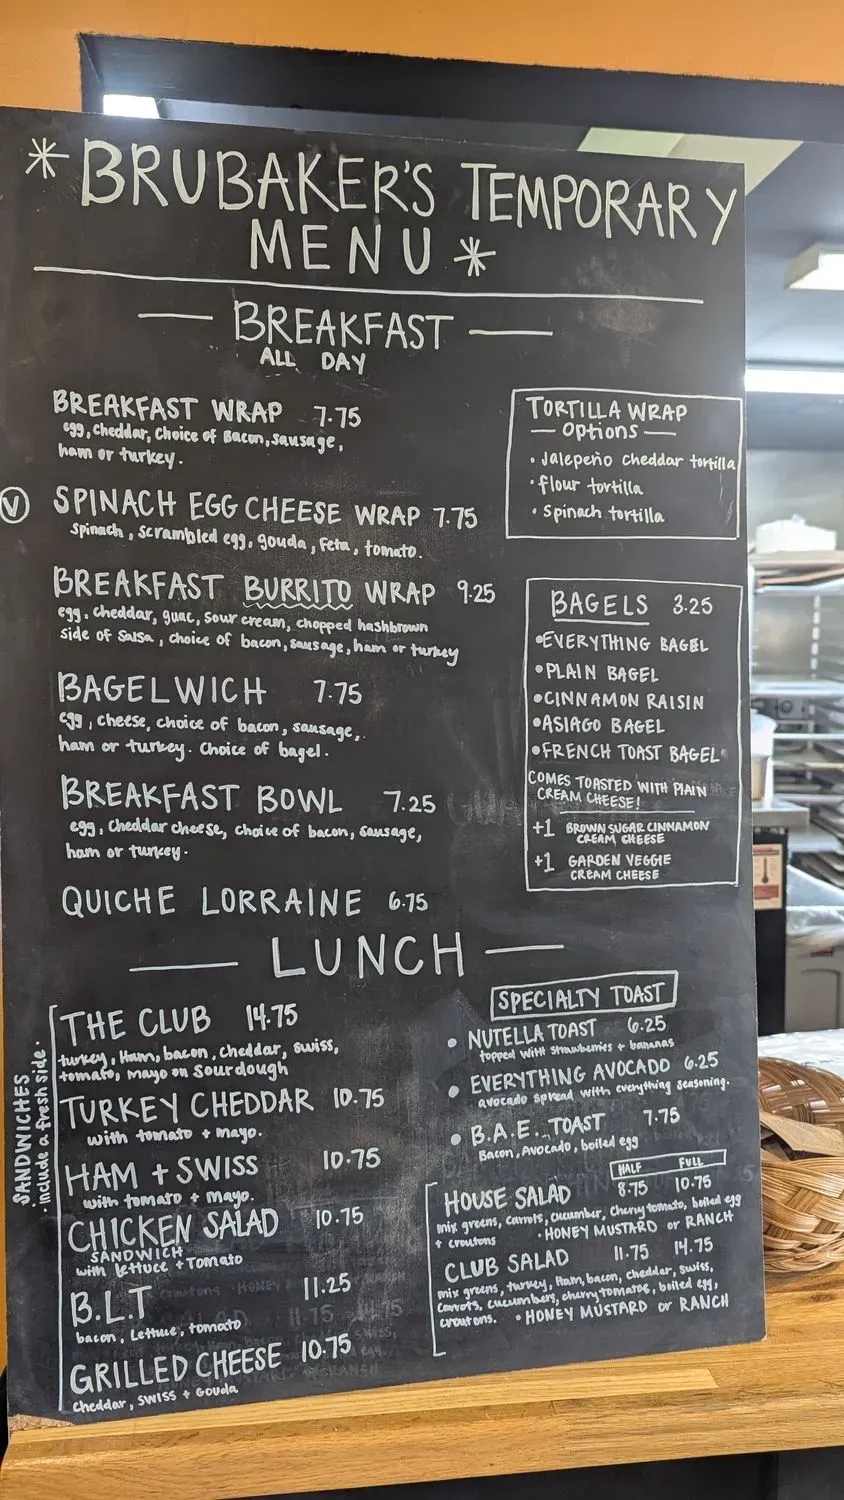 *BRUBAKER'S TEMPORARY
MENU*
BREAKFAST
ALL DAY
BREAKFAST WRAP 7.75
egg, cheddar, choice of Bacon, sausage,
ham or turkey.
V SPINACH EGG CHEESE WRAP 7.75
spinach, scrambled egg, gouda, feta, tomato.
BREAKFAST BURRITO WRAP 9.25
egg, cheddar, guac, sour cream, chopped hashbrown
side of salsa, choice of bacon, sausage, ham or turkey
BAGELWICH 7.75
egg, cheese, choice of bacon, sausage,
ham or turkey. Choice of bagel.
BREAKFAST BOWL 7.25
egg, cheddar cheese, choice of bacon, sausage,
ham or turkey.
QUICHE LORRAINE 6.75
TORTILLA WRAP
— options —
• Jalepeño cheddar tortilla
• flour tortilla
• spinach tortilla
BAGELS 3.25
•EVERYTHING BAGEL
•PLAIN BAGEL
•CINNAMON RAISIN
•ASIAGO BAGEL
•FRENCH TOAST BAGEL
COMES TOASTED WITH PLAIN
CREAM CHEESE!
+1 BROWN SUGAR CINNAMON
CREAM CHEESE
+1 GARDEN VEGGIE
CREAM CHEESE
— LUNCH —
SANDWICHES
• include a fresh side •
THE CLUB 14.75
turkey, Ham, bacon, cheddar, swiss,
tomato, mayo on sourdough
TURKEY CHEDDAR 10.75
with tomato + mayo.
HAM + SWISS 10.75
with tomato + mayo.
CHICKEN SALAD 10.75
SANDWICH
with lettuce + Tomato
B.L.T 11.25
bacon, Lettuce, tomato
GRILLED CHEESE 10.75
cheddar, swiss + Gouda
SPECIALTY TOAST
• NUTELLA TOAST 6.25
topped with strawberries + bananas
• EVERYTHING AVOCADO 6.25
avocado spread with everything seasoning.
• B.A.E. TOAST 7.75
Bacon, Avocado, boiled egg
HALF FULL
HOUSE SALAD 8.75 10.75
mix greens, carrots, cucumber, cherry tomato, boiled egg
+ croutons • HONEY MUSTARD or RANCH
CLUB SALAD 11.75 14.75
mix greens, turkey, Ham, bacon, cheddar, swiss,
carrots, cucumbers, cherry tomatoe, boiled egg,
croutons. • HONEY MUSTARD or RANCH